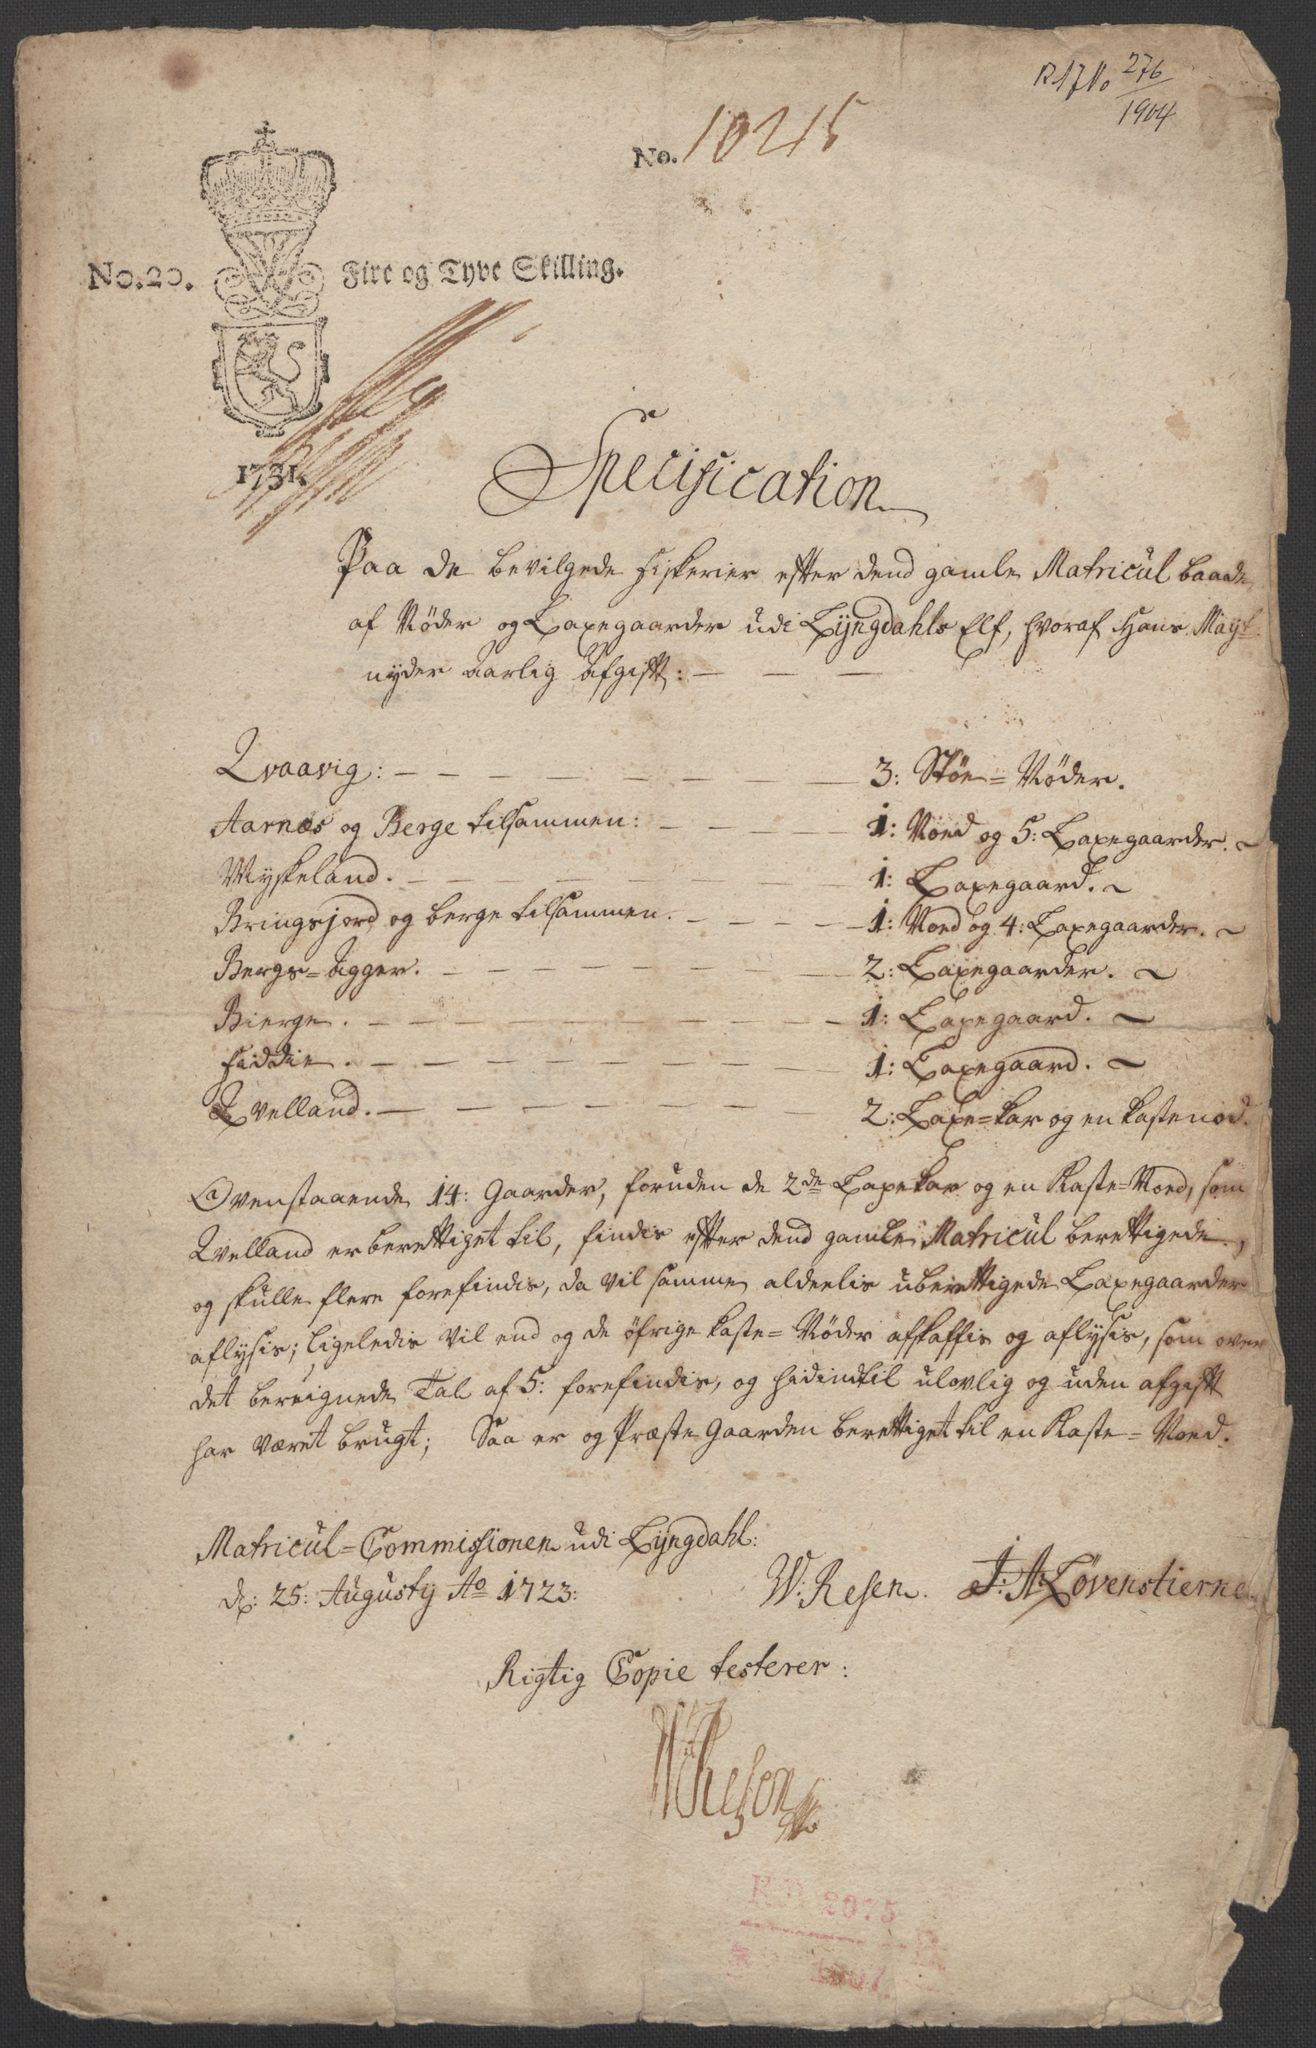 276
1904
No. 10215
No. 20. Fire og Tyve Skilling.
1731.
Specification
Paa de bevilgede Fiskerier efter dend gamle Matricul baade
af Nøder og Laxegaarder udi Lyngdahls Elf, hvoraf Hans Mayt:
nyder Aarlig Afgift: — — —
Qvaavig: — 3: Støe=Nøder.
Aarnæs og Berge tilsammen: — 1: Noed og 5: Laxegaarder.
Myskeland. — 1: Laxegaard.
Bringsjord og berge tilsammen. — 1: Noed og 4: Laxegaarder.
Bergs=Agger. — 2: Laxegaarder.
Bierge. — 1: Laxegaard.
Fiddie. — 1: Laxegaard.
Qvelland. — 2: Laxe=kar og en kastenod.
Ovenstaaende 14: Gaarder, foruden de 2de Laxekar og en Kaste=Noed, som
Qvelland er berettiget til, findis efter dend gamle Matricul berettigede,
og skulle flere forefindis, da vil samme aldeelis uberettigede Laxegaarder
aflysis; ligeledis vil end og de øfrige kaste=Nøder afskaffis og aflysis, som over
det bereignede Tal af 5: forefindis, og hidindtil ulovlig og uden afgift
har været brugt; Saa er og Præste Gaarden berettiget til en Kaste=Noed.
Matricul=Commissionen udi Lyngdahl:
d: 25: Augusty Ao 1723:
W: Resen. J: A: Løvenstierne
Rigtig Copie testerer:
WResen